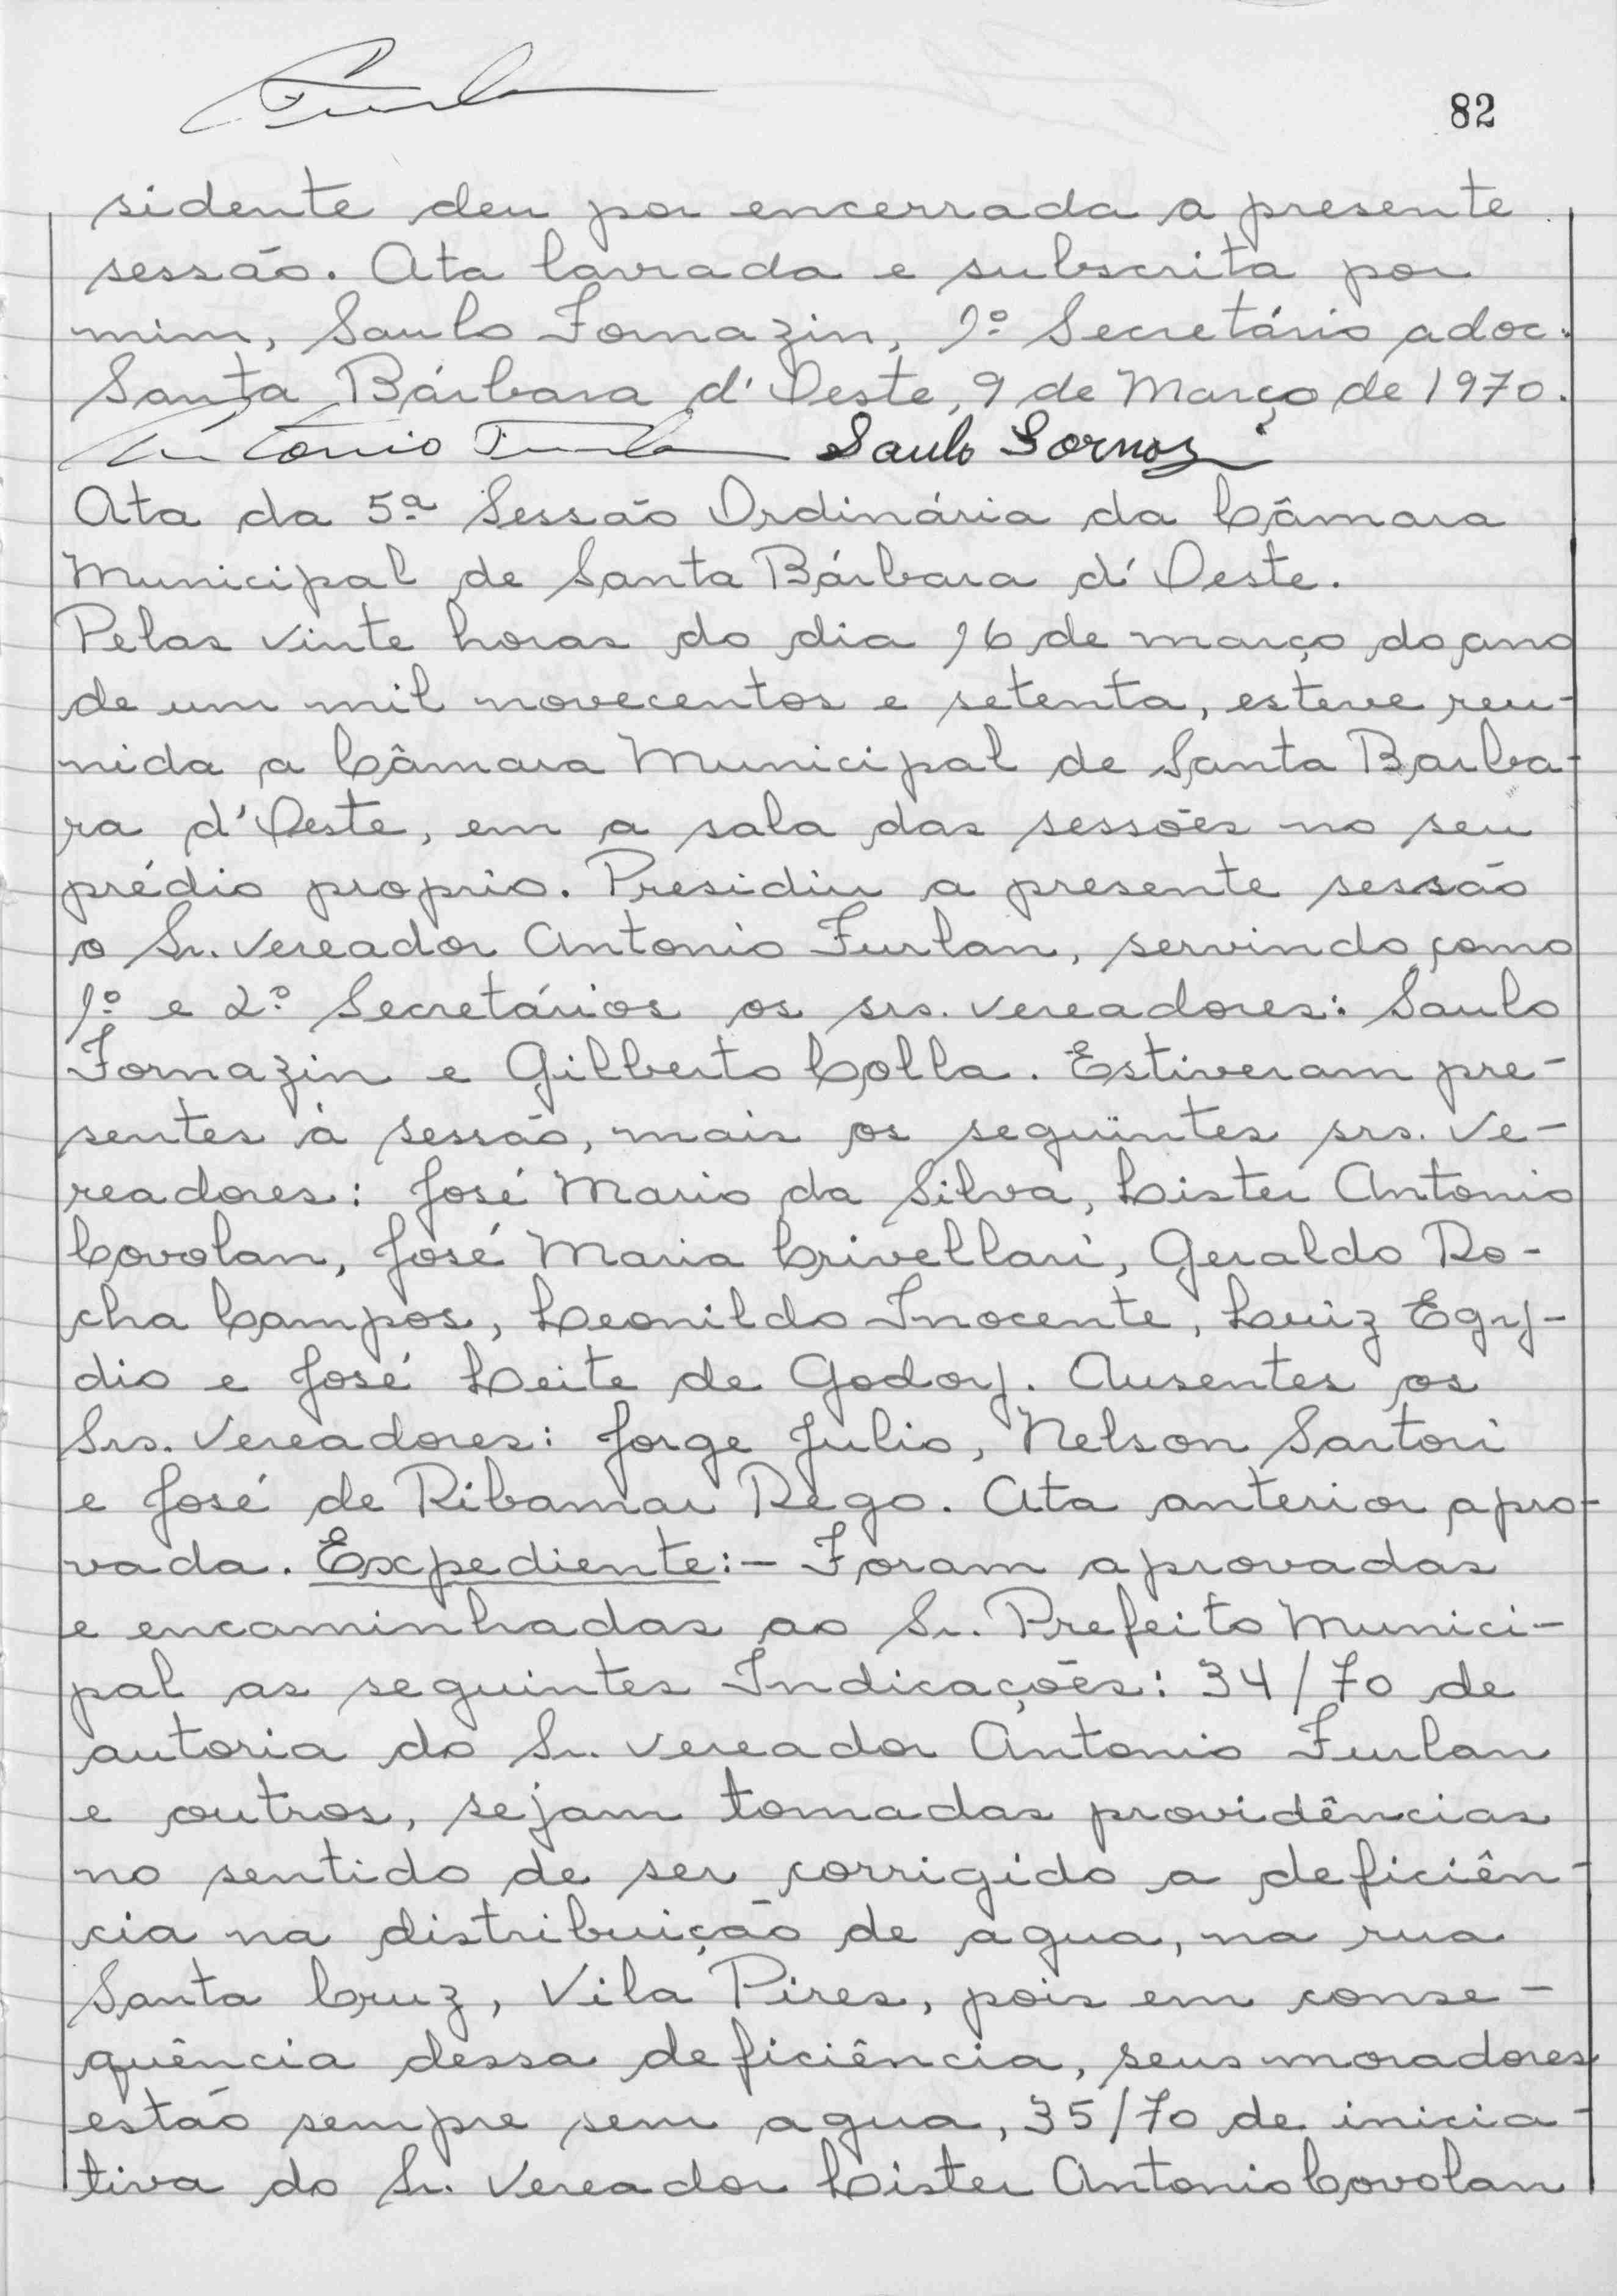 Furlan
82
sidente deu por encerrada a presente
sessão. Ata lavrada e subscrita por
mim, Saulo Fornazin, 1º Secretário adoc.
Santa Bárbara d'Oeste, 9 de Março de 1970.
Antonio Furlan Saulo Fornazin
Ata da 5ª Sessão Ordinária da Câmara
Municipal de Santa Bárbara d'Oeste.
Pelas vinte horas do dia 16 de março do ano
de um mil novecentos e setenta, esteve reu-
nida a Câmara Municipal de Santa Barba-
ra d'Oeste, em a sala das sessões no seu
prédio proprio. Presidiu a presente sessão
o Sr. Vereador Antonio Furlan, servindo como
1º e 2º Secretários os srs. vereadores: Saulo
Fornazin e Gilberto Colla. Estiveram pre-
sentes à sessão, mais os seguintes srs. Ve-
readores: José Mario da Silva, Lister Antonio
Covolan, José Maria Crivellari, Geraldo Ro-
cha Campos, Leonildo Inocente, Luiz Egy-
dio e José Leite de Godoy. Ausentes os
Srs. Vereadores: Jorge Julio, Nelson Sartori
e José de Ribamar Rego. Ata anterior apro-
vada. Expediente:- Foram aprovadas
e encaminhadas ao Sr. Prefeito Munici-
pal as seguintes Indicações: 34/70 de
autoria do Sr. vereador Antonio Furlan
e outros, sejam tomadas providências
no sentido de ser corrigido a deficiên-
cia na distribuição de agua, na rua
Santa Cruz, Vila Pires, pois em conse-
quência dessa deficiência, seus moradores
estão sempre sem agua, 35/70 de inicia-
tiva do Sr. Vereador Lister Antonio Covolan